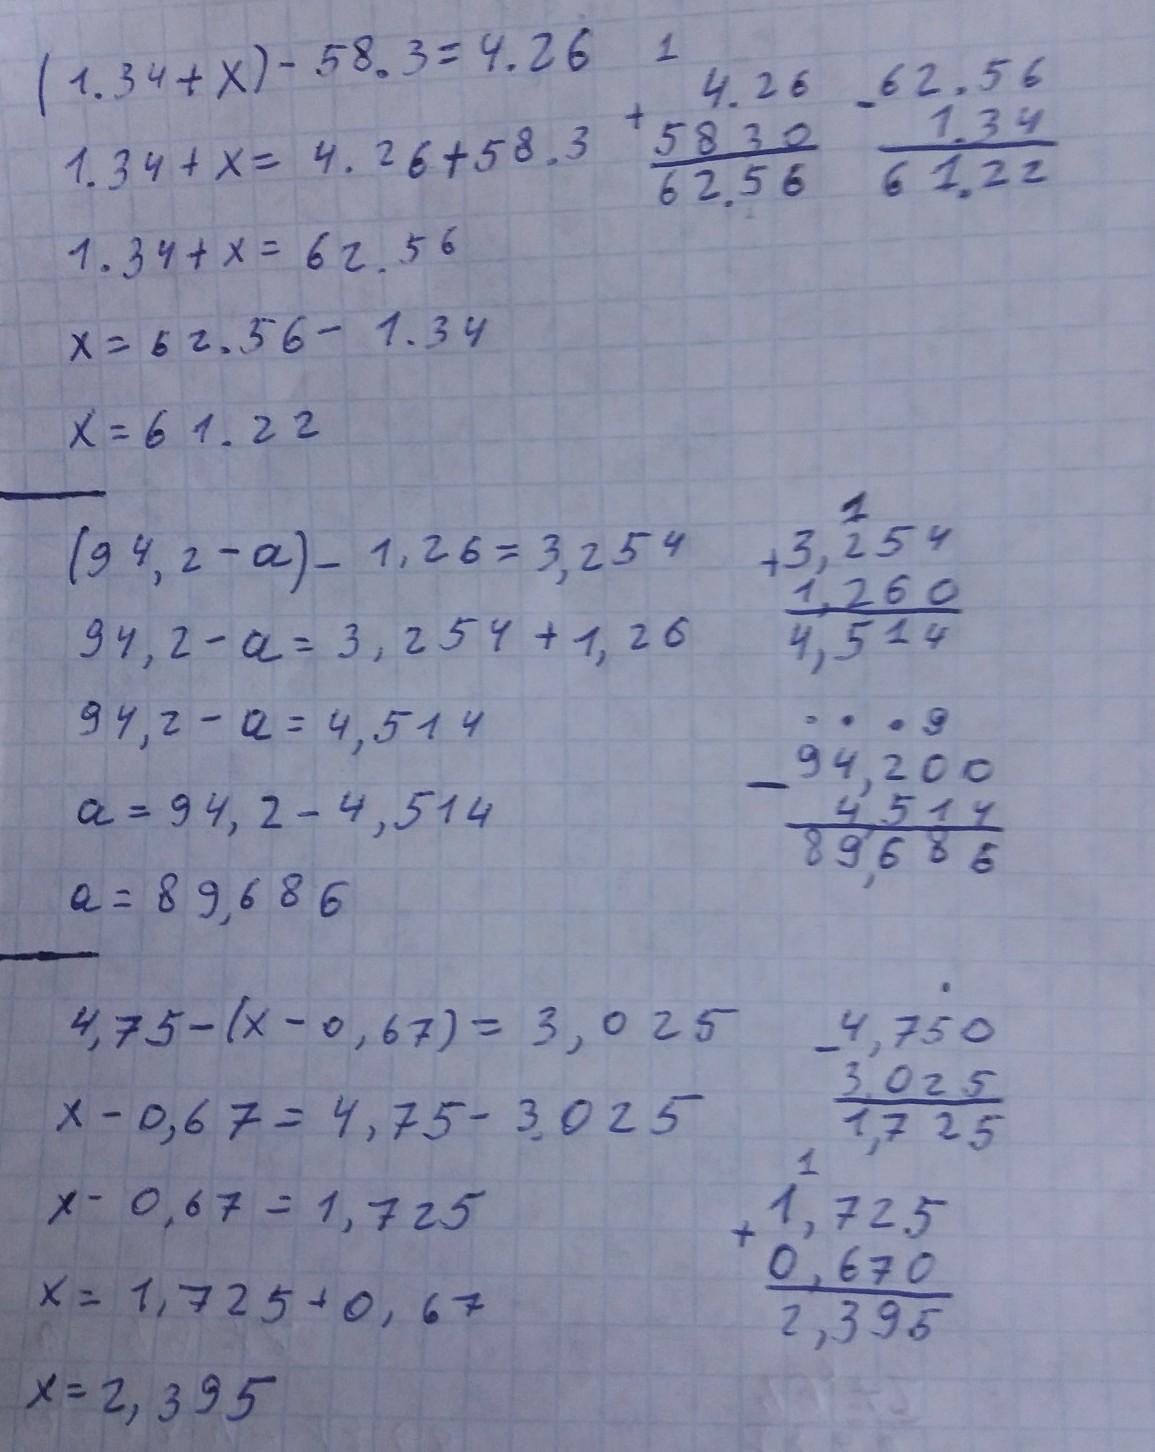 (1.34+x)-58.3=4.26
1.34+x=4.26+58.3
1.34+x=62.56
x=62.56-1.34
x=61.22
1
+4.26
5830
62.56
-62.56
1.34
61.22
(94,2-a)-1,26=3,254
94,2-a=3,254+1,26
94,2-a=4,514
a=94,2-4,514
a=89,686
1
+3,254
1,260
4,514
· · · 9
-94,200
4514
89,686
4,75-(x-0,67)=3,025
x-0,67=4,75-3,025
x-0,67=1,725
x=1,725+0,67
x=2,395
·
-4,750
3,025
1,725
1
+1,725
0,670
2,395